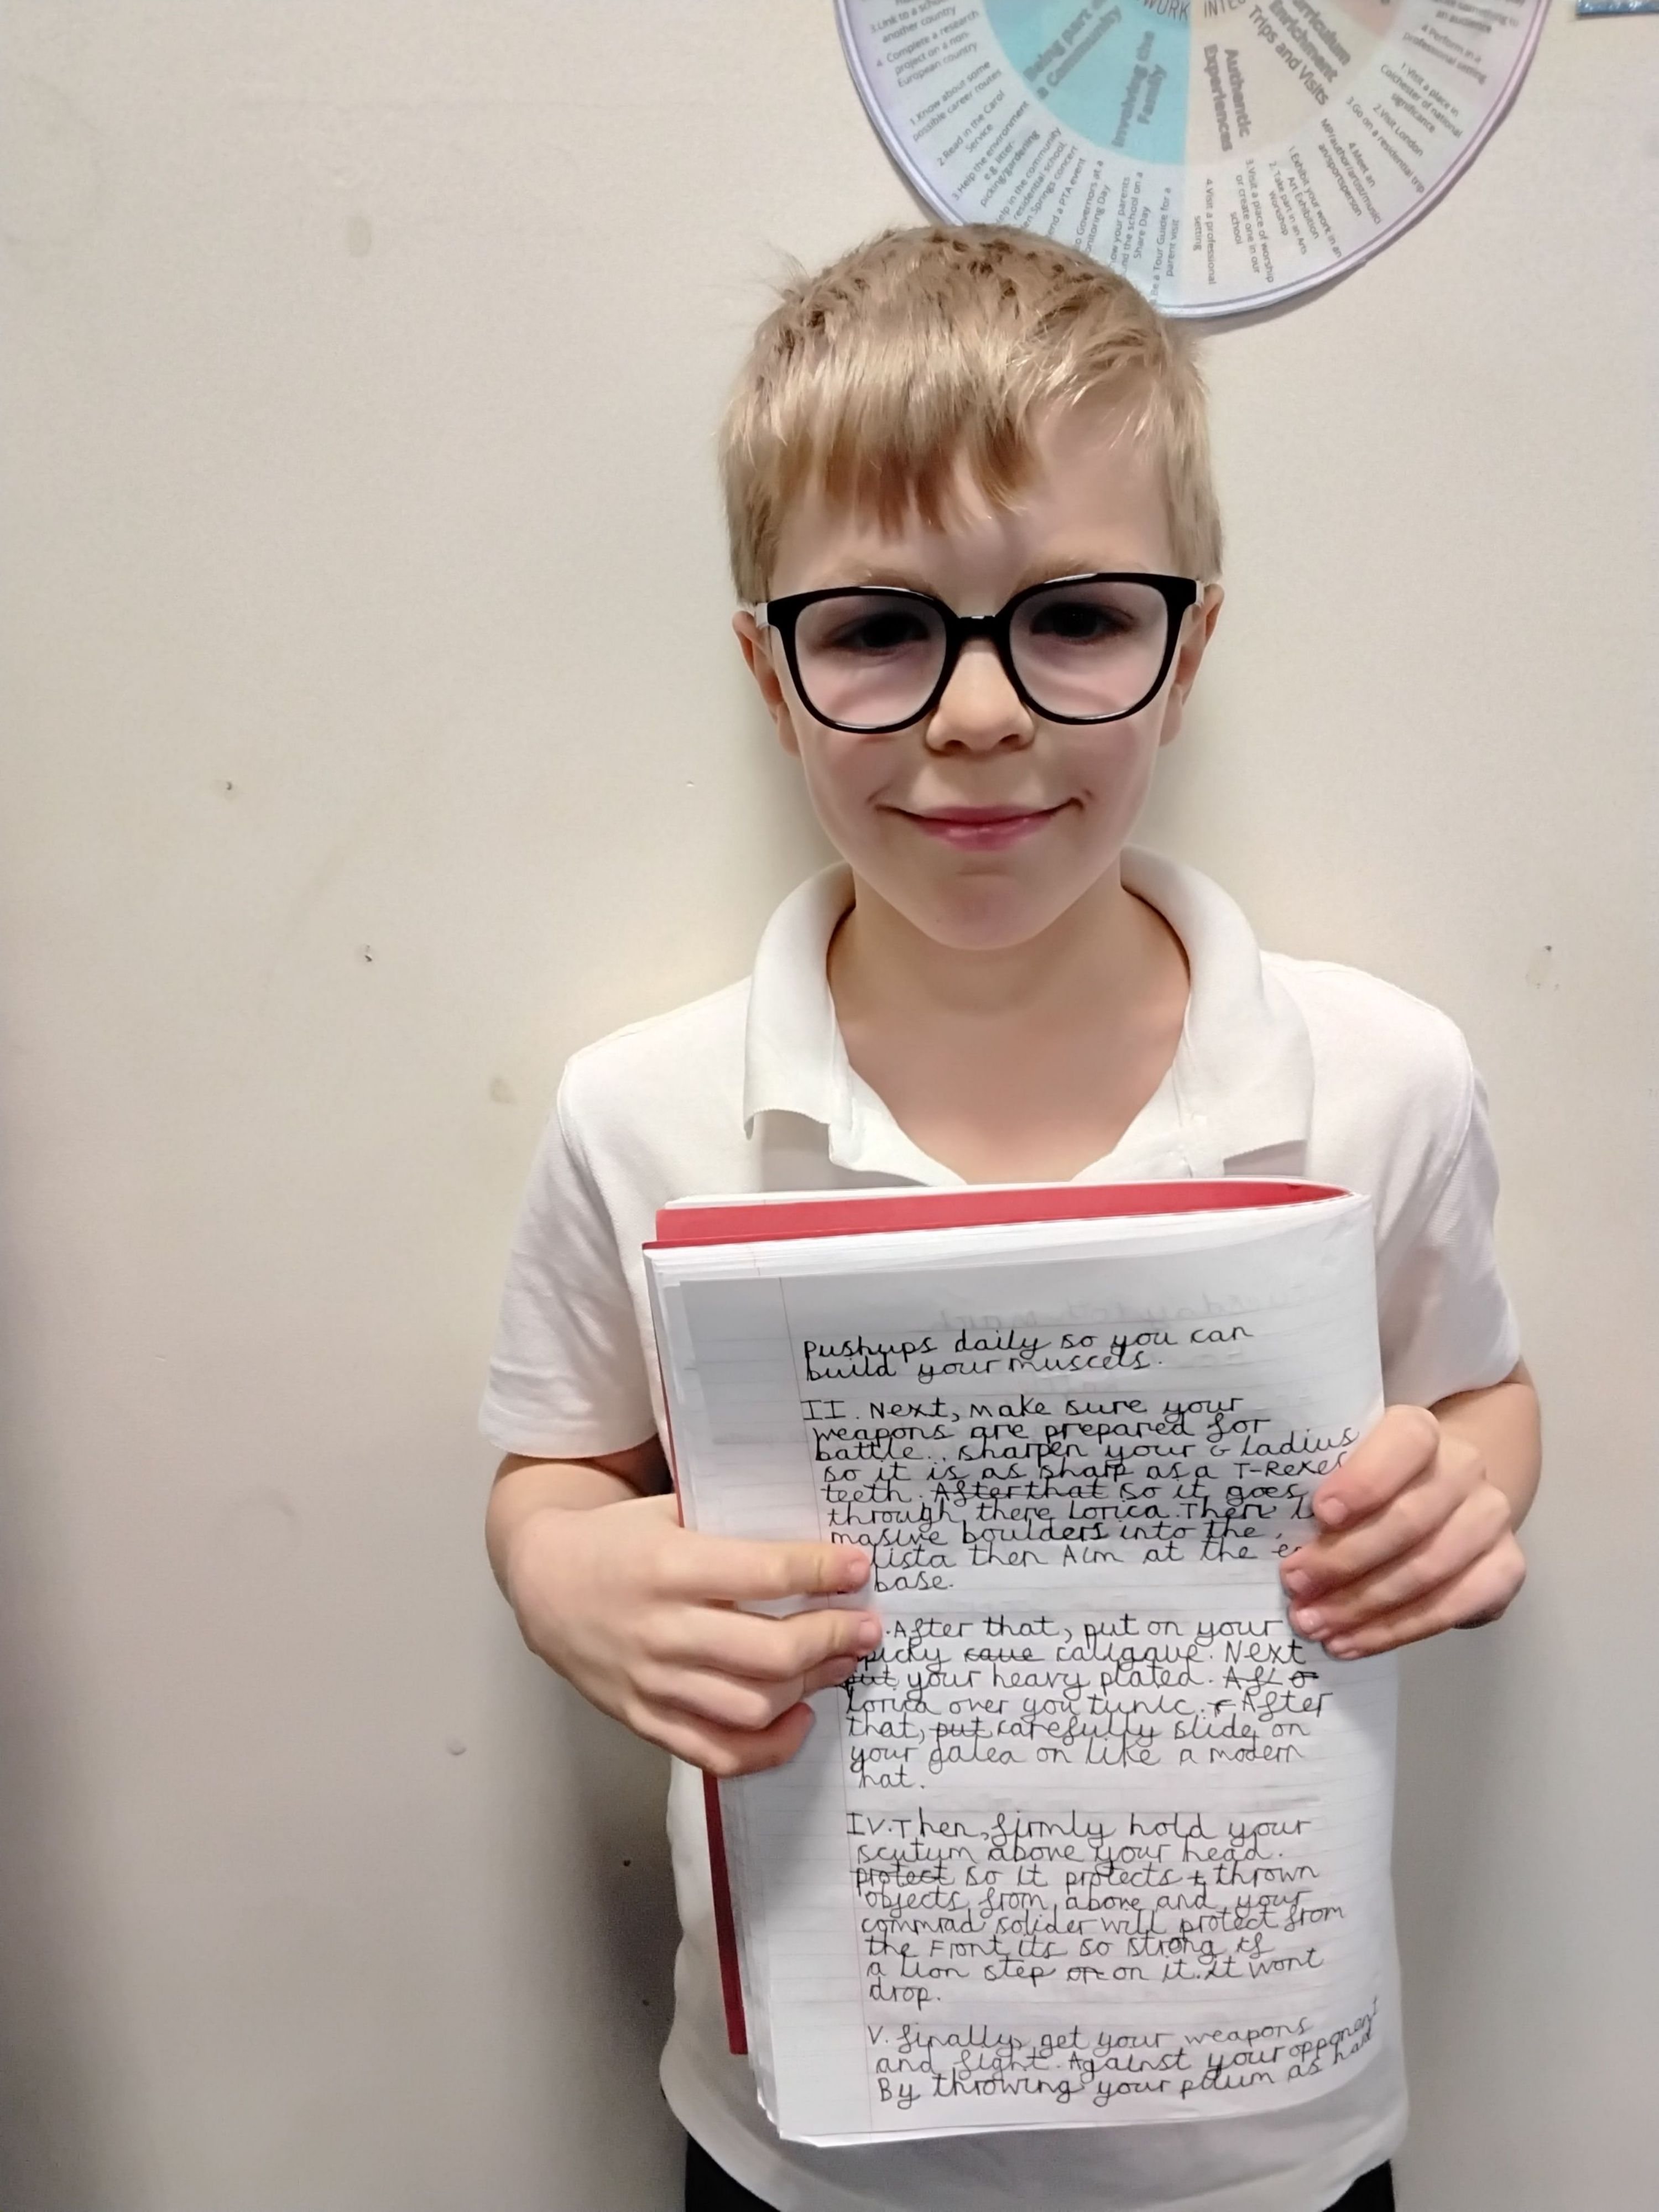 WORK
3.Link to a school
another country
4. Complete a research
project on a non-
European country
1.Know about some
possible career routes
2.Read in the Carol
Service
3.Help the environment
e.g. litter-
picking/gardening
in the community
residential school,
Springs concert
a PTA event
Governors at a
Monitoring Day
your parents
the school on a
Share Day
Be a Tour Guide for a
parent visit
Being part of
a Community
Involving the
Family
Authentic
Experiences
Enrichment
Trips and Visits
4.Visit a professional
setting
3.Visit a place of worship
or create one in our
school
2.Take part in an Arts
Workshop
1.Exhibit your work in an
Art Exhibition
4.Meet an
MP/author/artist/music
an/sportsperson
3.Go on a residential trip
2.Visit London
1.Visit a place in
Colchester of national
significance
4.Perform in a
professional setting
an audience
Pushups daily so you can
build your muscels.
II. Next, make sure your
weapons are prepared for
battle.. sharpen your Gladius
so it is as sharp as a T-Rexes
teeth. After that so it goes
through there Lorica. There
masive boulders into the
lista then Aim at the
base.
.After that, put on your
picky cave caligave. Next
put your heavy plated.
Lorica over you tunic. After
that, put carefully slide on
your galea on like a modern
hat.
IV.Then, firmly hold your
scutum above your head.
protect so it protects t thrown
objects from above and your
commrad solider will protect from
the Front its so strong if
a lion step on on it. It wont
drop.
V. finally, get your weapons
and fight. Against your opponent
By throwing your pilum as hard